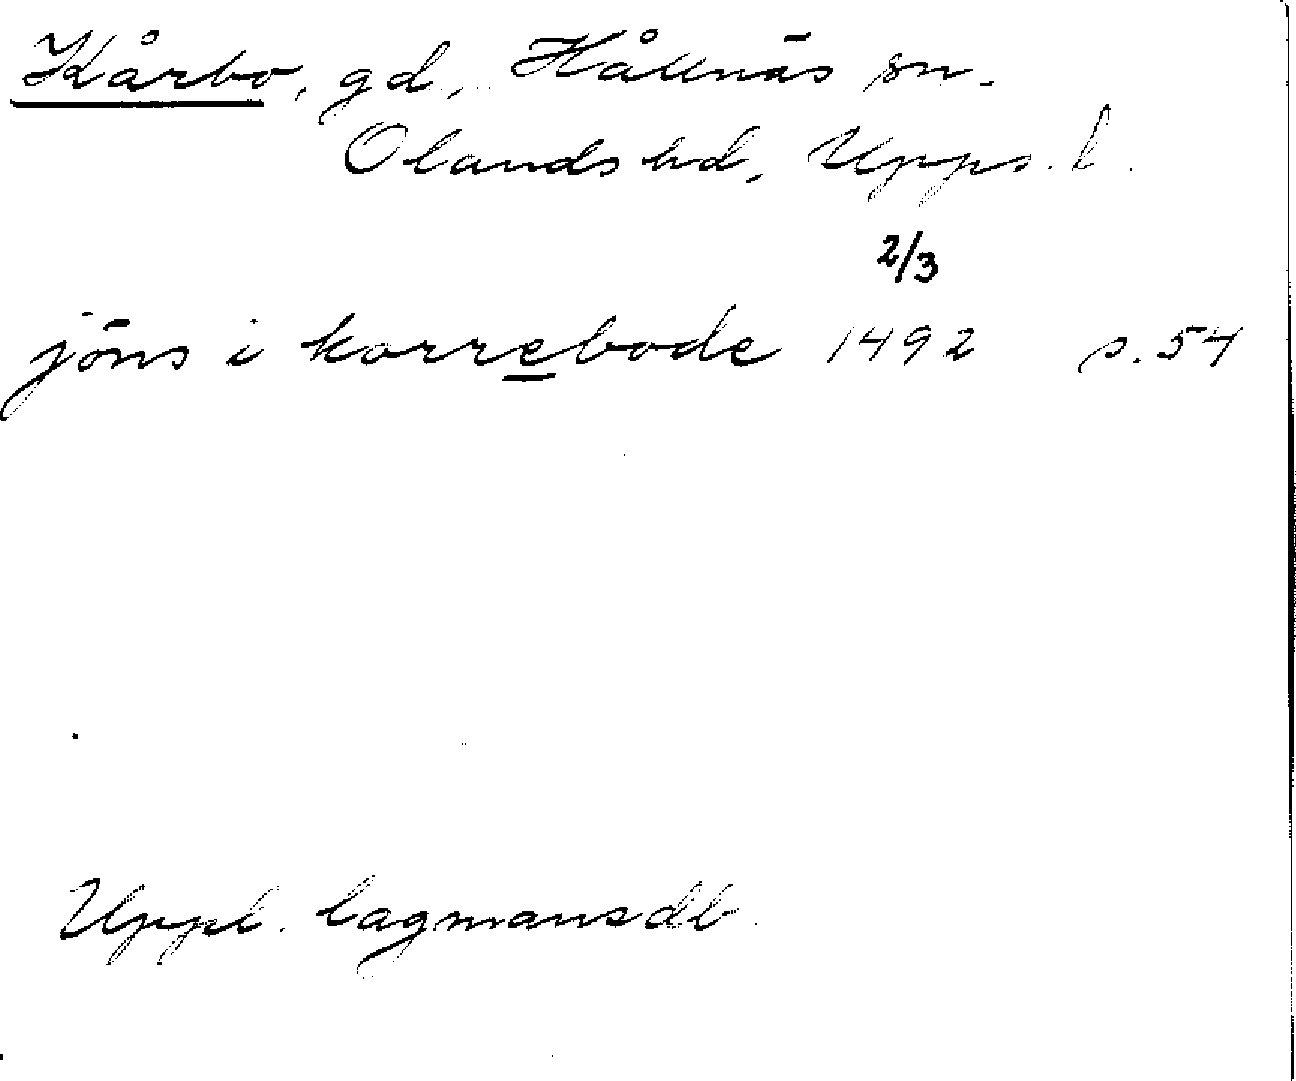 Kårbo, gd, Hållnäs sn.
Olands hd, Upps. l.
2/3
jöns i korrebode 1492 s. 54
Uppl. lagmansdb.